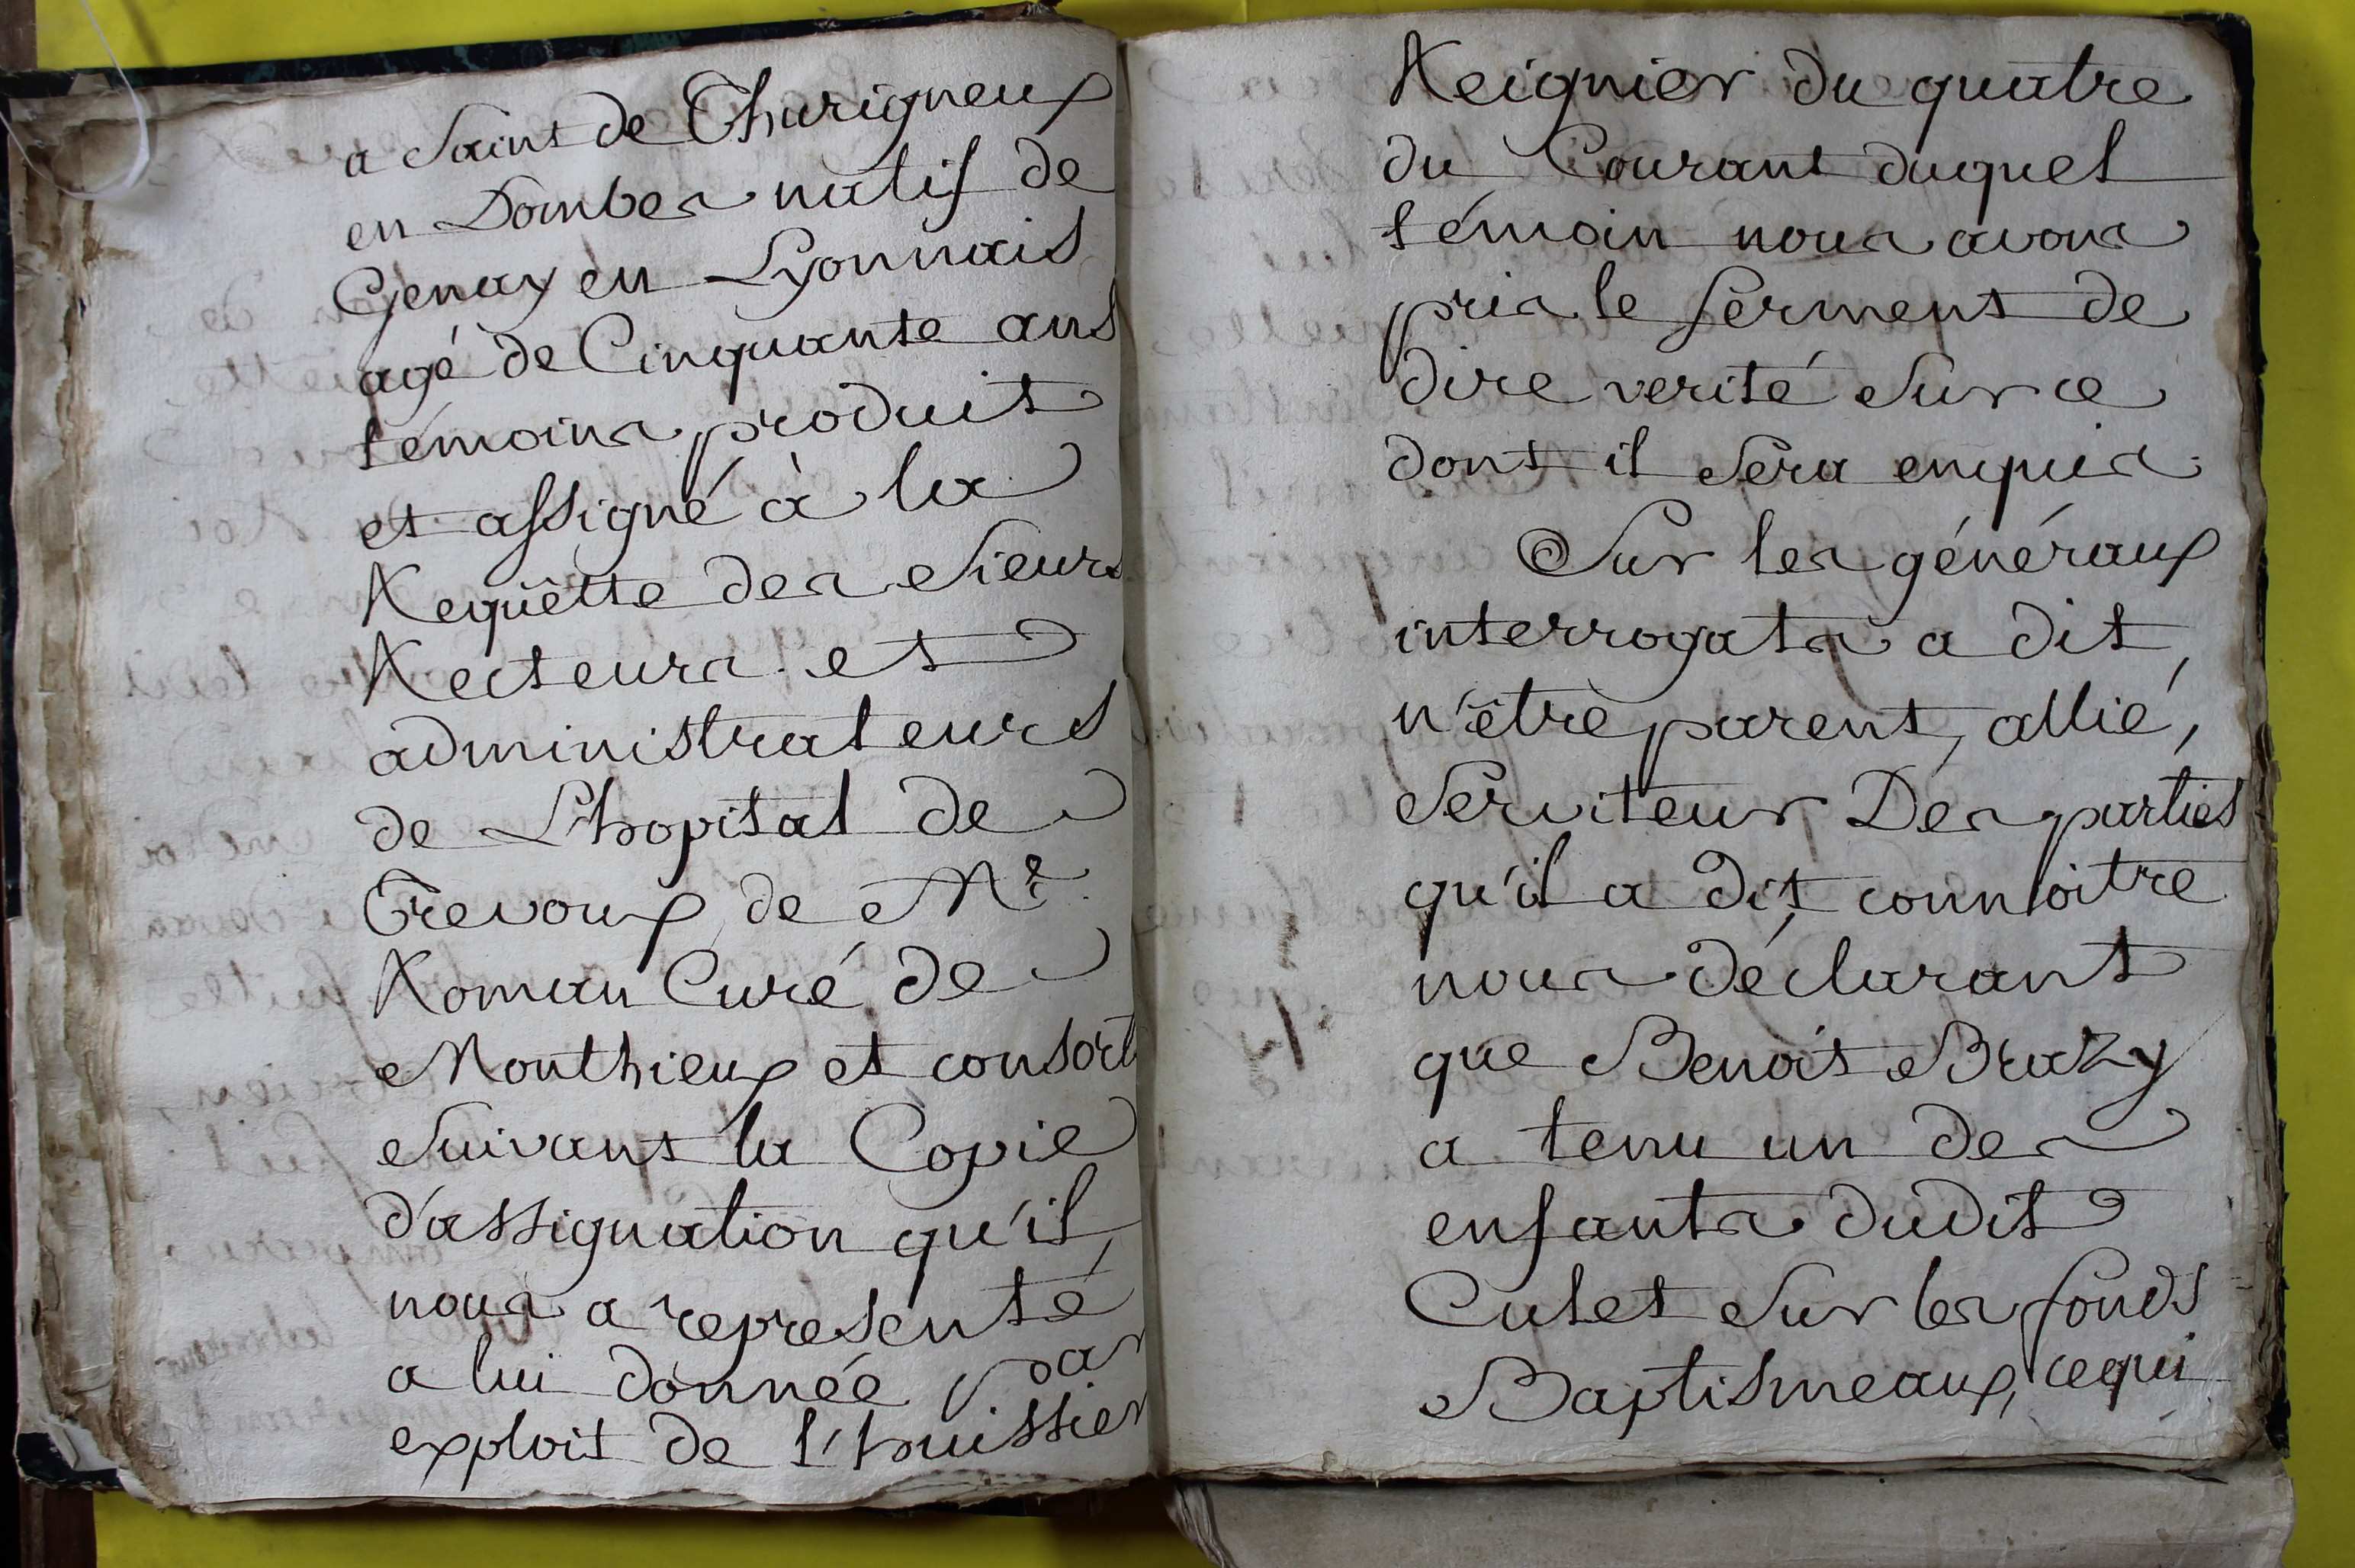 a Saint de Thurigneux
en Dombes natif de
Genay en Lyonnais
agé de Cinquante ans
témoins produit
et assigné à la
Requêtte des Sieurs
Recteurs et
administrateurs
de L'hopital de
Trevoux, de Mr.
Roman Curé de
Monthieux et consorts
Suivant la Copie
d'assignation qu'il
nous a représenté
a lui donnée par
exploit de l'huissier
Reignier du quatre
du Courant duquel
témoin nous avons
pris le serment de
dire verité Sur ce
dont il Sera enquis.
Sur les généraux
interrogats a dit,
n'être parent, allié,
Serviteur Des parties
qu'il a dit connoitre
nous déclarant
que Benoit Brazy
a tenu un des
enfants dudit
Cutet Sur les fonds
Baptismeaux, ce qui